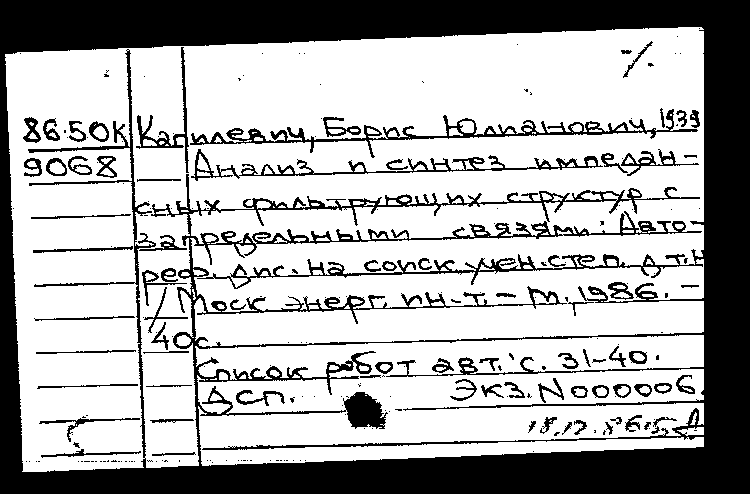 86.50К Капилевич, Борис Юлианович, 1939
9068 Анализ и синтез импедан-
сных фильтрующих структур с
запредельными связями: Авто-
реф. дис. на соиск. учен. степ. д. т. н
/ Моск энерг. ин-т. - М., 1986. -
40с.
Список робот авт.: с. 31-40.
ДСП. Экз. N000006.
18.12.86